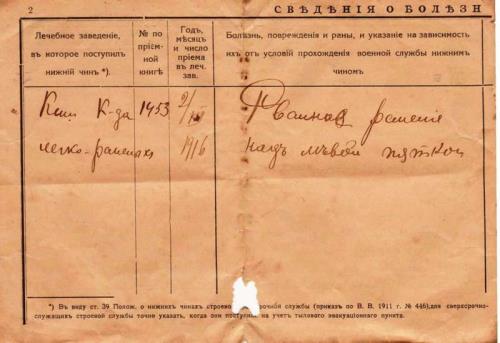 2
СВѢДѢНІЯ О БОЛѢЗН
Лечебное заведеніе,
въ которое поступил
нижній чинъ *).
№ по
пріем-
ной
книгѣ
Годъ,
мѣсяцъ
и число
пріема
въ леч.
зав.
Болѣзнь, поврежденія и раны, и указаніе на зависимость
ихъ отъ условій прохожденія военной службы нижнимъ
чиномъ
К-да 1453 2/
Рваная раненіе
легко-раненыхъ 1916 надъ лѣвой пяткой
*) Въ виду ст. 39 Полож. о нижнихъ чинахъ строево срочной службы (приказъ по В. В. 1911 г. № 446), для сверхсрочно-
служащихъ строевой службы точно указать, когда они поступи на учетъ тылового эвакуаціоннаго пункта.